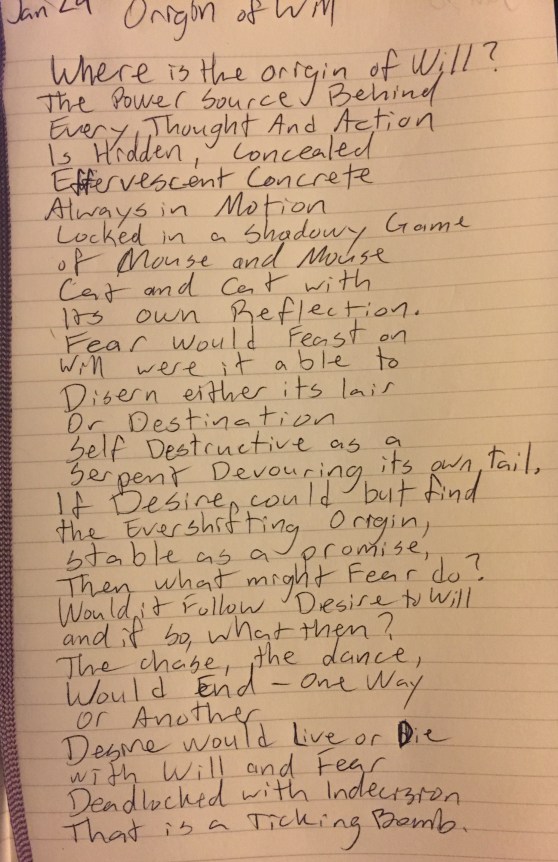 Jan 29 Origin of Will
Where is the origin of Will?
The Power Source Behind
Every Thought And Action
Is Hidden, Concealed
Effervescent Concrete
Always in Motion
Locked in a Shadowy Game
of Mouse and Mouse
Cat and Cat with
Its own Reflection.
Fear would Feast on
Will were it able to
Disern either its lair
Or Destination
Self Destructive as a
Serpent Devouring its own tail,
If Desire could but find
the Evershifting Origin,
stable as a promise,
Then what might Fear do?
Would it Follow Desire to Will
and if so, what then?
The chase, the dance,
Would End - One Way
or Another
Desire would Live or Die
with Will and Fear
Deadlocked with Indecision
That is a Ticking Bomb.